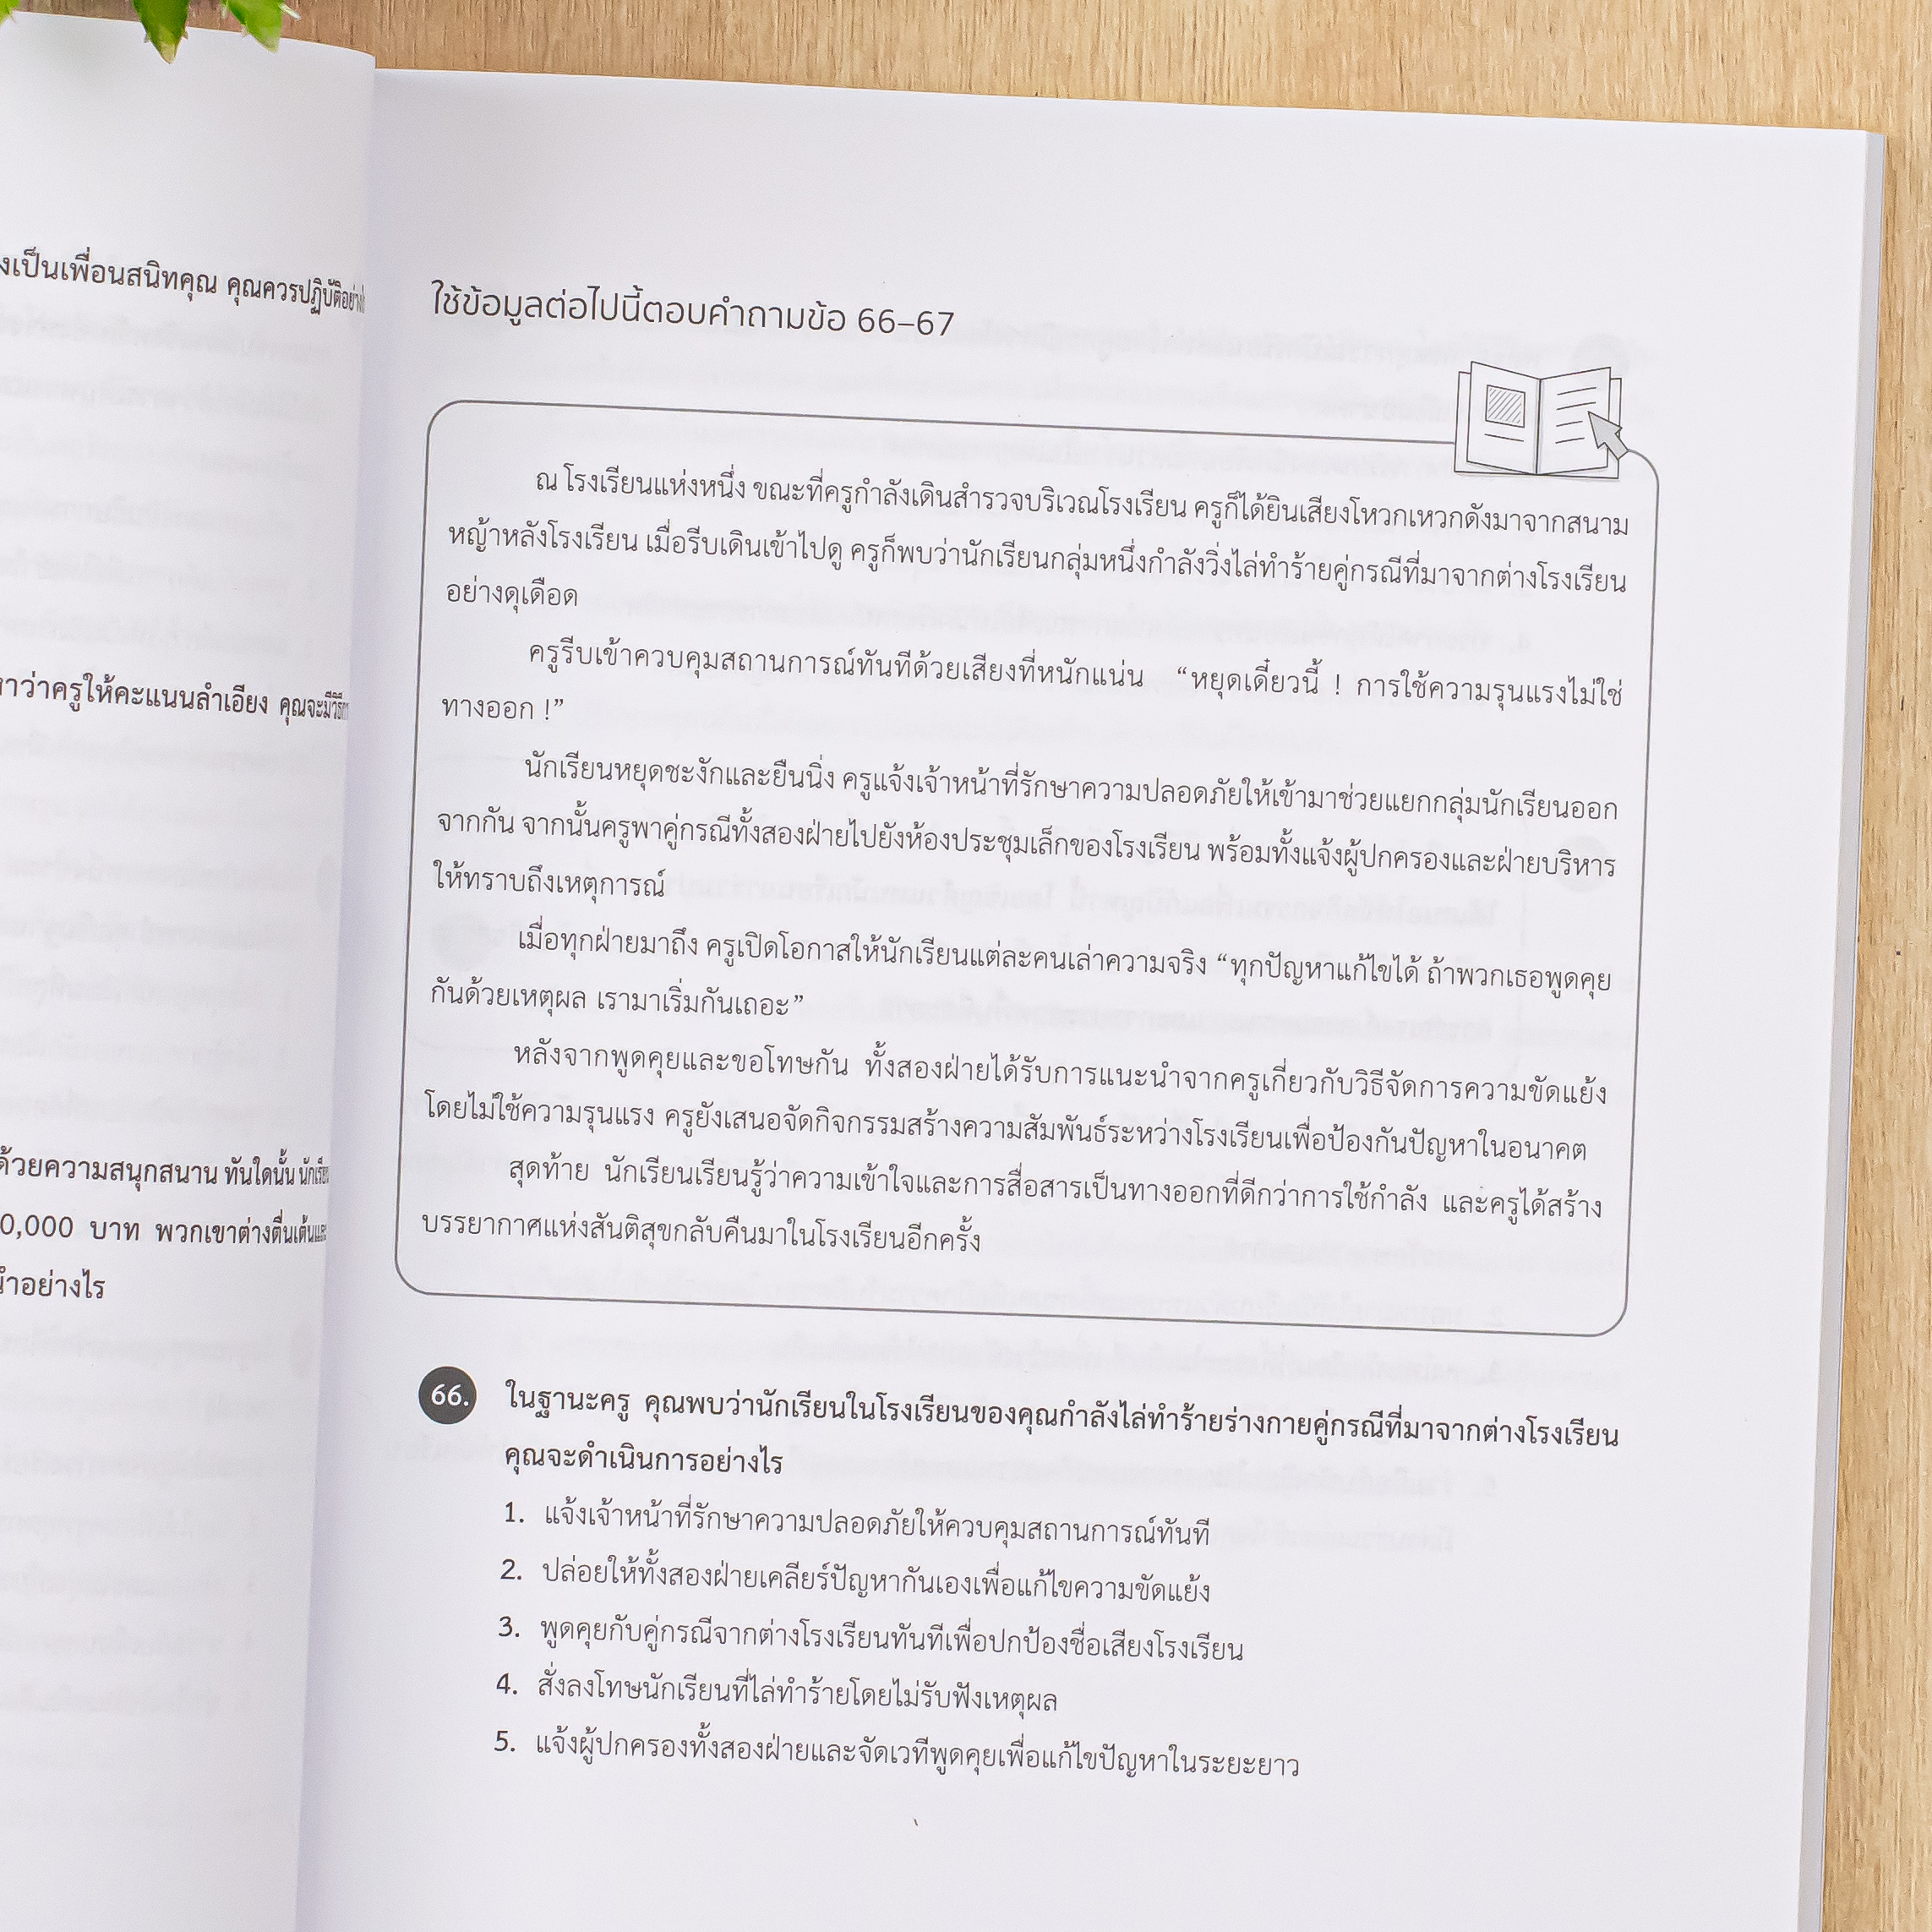 งเป็นเพื่อนสนิทคุณ คุณควรปฏิบัติอย่าง
หาว่าครูให้คะแนนลำเอียง คุณจะมีวิธี
ด้วยความสนุกสนาน ทันใดนั้น นักเรียน
0,000 บาท พวกเขาต่างตื่นเต้นและ
นำอย่างไร
ใช้ข้อมูลต่อไปนี้ตอบคำถามข้อ 66–67
ณ โรงเรียนแห่งหนึ่ง ขณะที่ครูกำลังเดินสำรวจบริเวณโรงเรียน ครูก็ได้ยินเสียงโหวกเหวกดังมาจากสนาม
หญ้าหลังโรงเรียน เมื่อรีบเดินเข้าไปดู ครูก็พบว่านักเรียนกลุ่มหนึ่งกำลังวิ่งไล่ทำร้ายคู่กรณีที่มาจากต่างโรงเรียน
อย่างดุเดือด
ครูรีบเข้าควบคุมสถานการณ์ทันทีด้วยเสียงที่หนักแน่น “หยุดเดี๋ยวนี้ ! การใช้ความรุนแรงไม่ใช่
ทางออก !”
นักเรียนหยุดชะงักและยืนนิ่ง ครูแจ้งเจ้าหน้าที่รักษาความปลอดภัยให้เข้ามาช่วยแยกกลุ่มนักเรียนออก
จากกัน จากนั้นครูพาคู่กรณีทั้งสองฝ่ายไปยังห้องประชุมเล็กของโรงเรียน พร้อมทั้งแจ้งผู้ปกครองและฝ่ายบริหาร
ให้ทราบถึงเหตุการณ์
เมื่อทุกฝ่ายมาถึง ครูเปิดโอกาสให้นักเรียนแต่ละคนเล่าความจริง “ทุกปัญหาแก้ไขได้ ถ้าพวกเธอพูดคุย
กันด้วยเหตุผล เรามาเริ่มกันเถอะ”
หลังจากพูดคุยและขอโทษกัน ทั้งสองฝ่ายได้รับการแนะนำจากครูเกี่ยวกับวิธีจัดการความขัดแย้ง
โดยไม่ใช้ความรุนแรง ครูยังเสนอจัดกิจกรรมสร้างความสัมพันธ์ระหว่างโรงเรียนเพื่อป้องกันปัญหาในอนาคต
สุดท้าย นักเรียนเรียนรู้ว่าความเข้าใจและการสื่อสารเป็นทางออกที่ดีกว่าการใช้กำลัง และครูได้สร้าง
บรรยากาศแห่งสันติสุขกลับคืนมาในโรงเรียนอีกครั้ง
66. ในฐานะครู คุณพบว่านักเรียนในโรงเรียนของคุณกำลังไล่ทำร้ายร่างกายคู่กรณีที่มาจากต่างโรงเรียน
คุณจะดำเนินการอย่างไร
1. แจ้งเจ้าหน้าที่รักษาความปลอดภัยให้ควบคุมสถานการณ์ทันที
2. ปล่อยให้ทั้งสองฝ่ายเคลียร์ปัญหากันเองเพื่อแก้ไขความขัดแย้ง
3. พูดคุยกับคู่กรณีจากต่างโรงเรียนทันทีเพื่อปกป้องชื่อเสียงโรงเรียน
4. สั่งลงโทษนักเรียนที่ไล่ทำร้ายโดยไม่รับฟังเหตุผล
5. แจ้งผู้ปกครองทั้งสองฝ่ายและจัดเวทีพูดคุยเพื่อแก้ไขปัญหาในระยะยาว